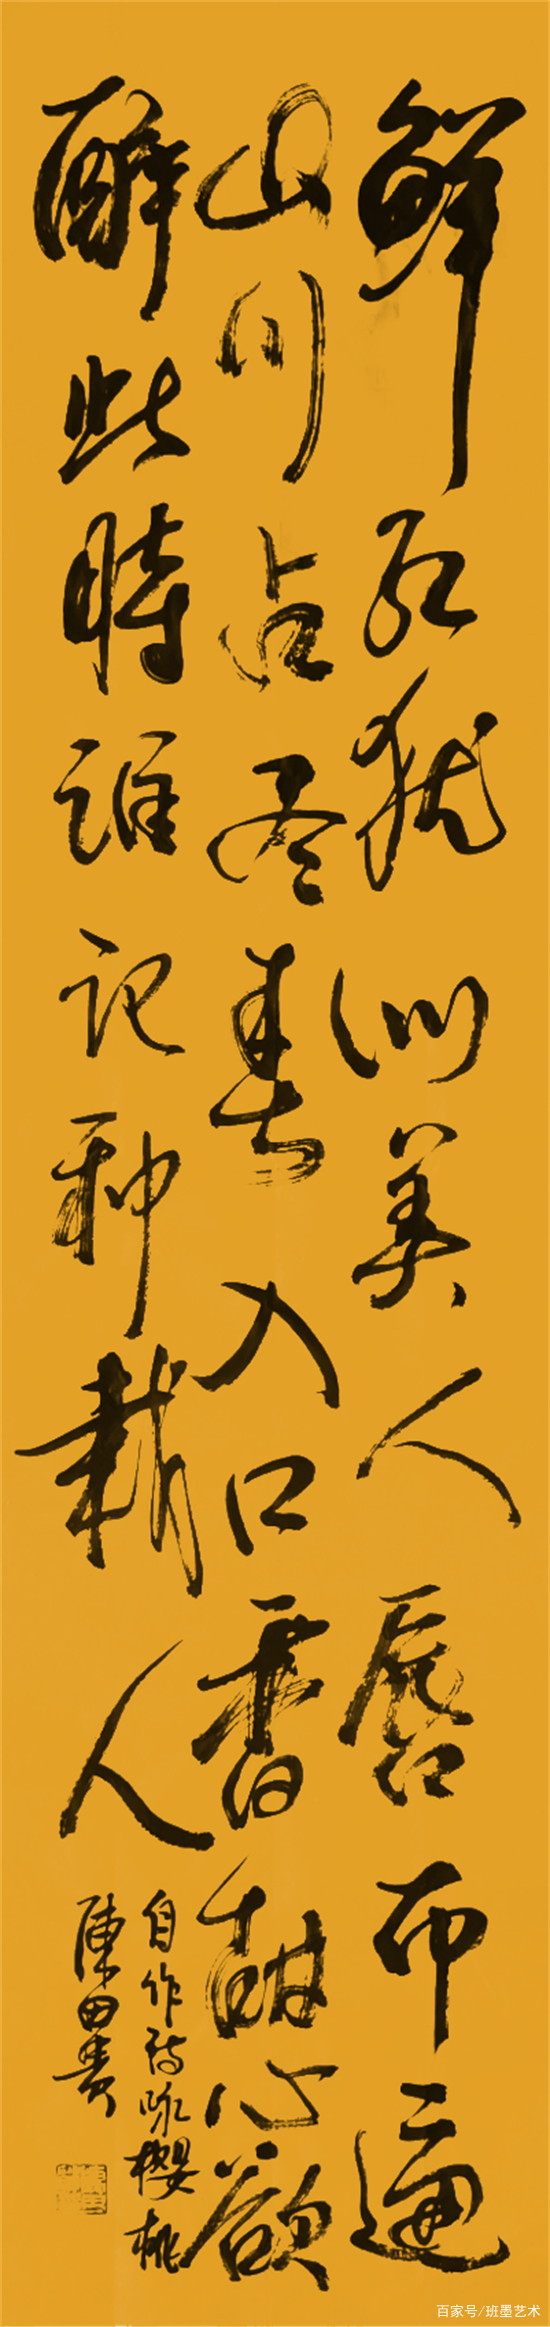 鲜红犹似美人唇布遍
山川占尽春入口香甜心欲
醉此时谁记种栽人
自作诗咏樱桃
陈田贵
百家号/班墨艺术